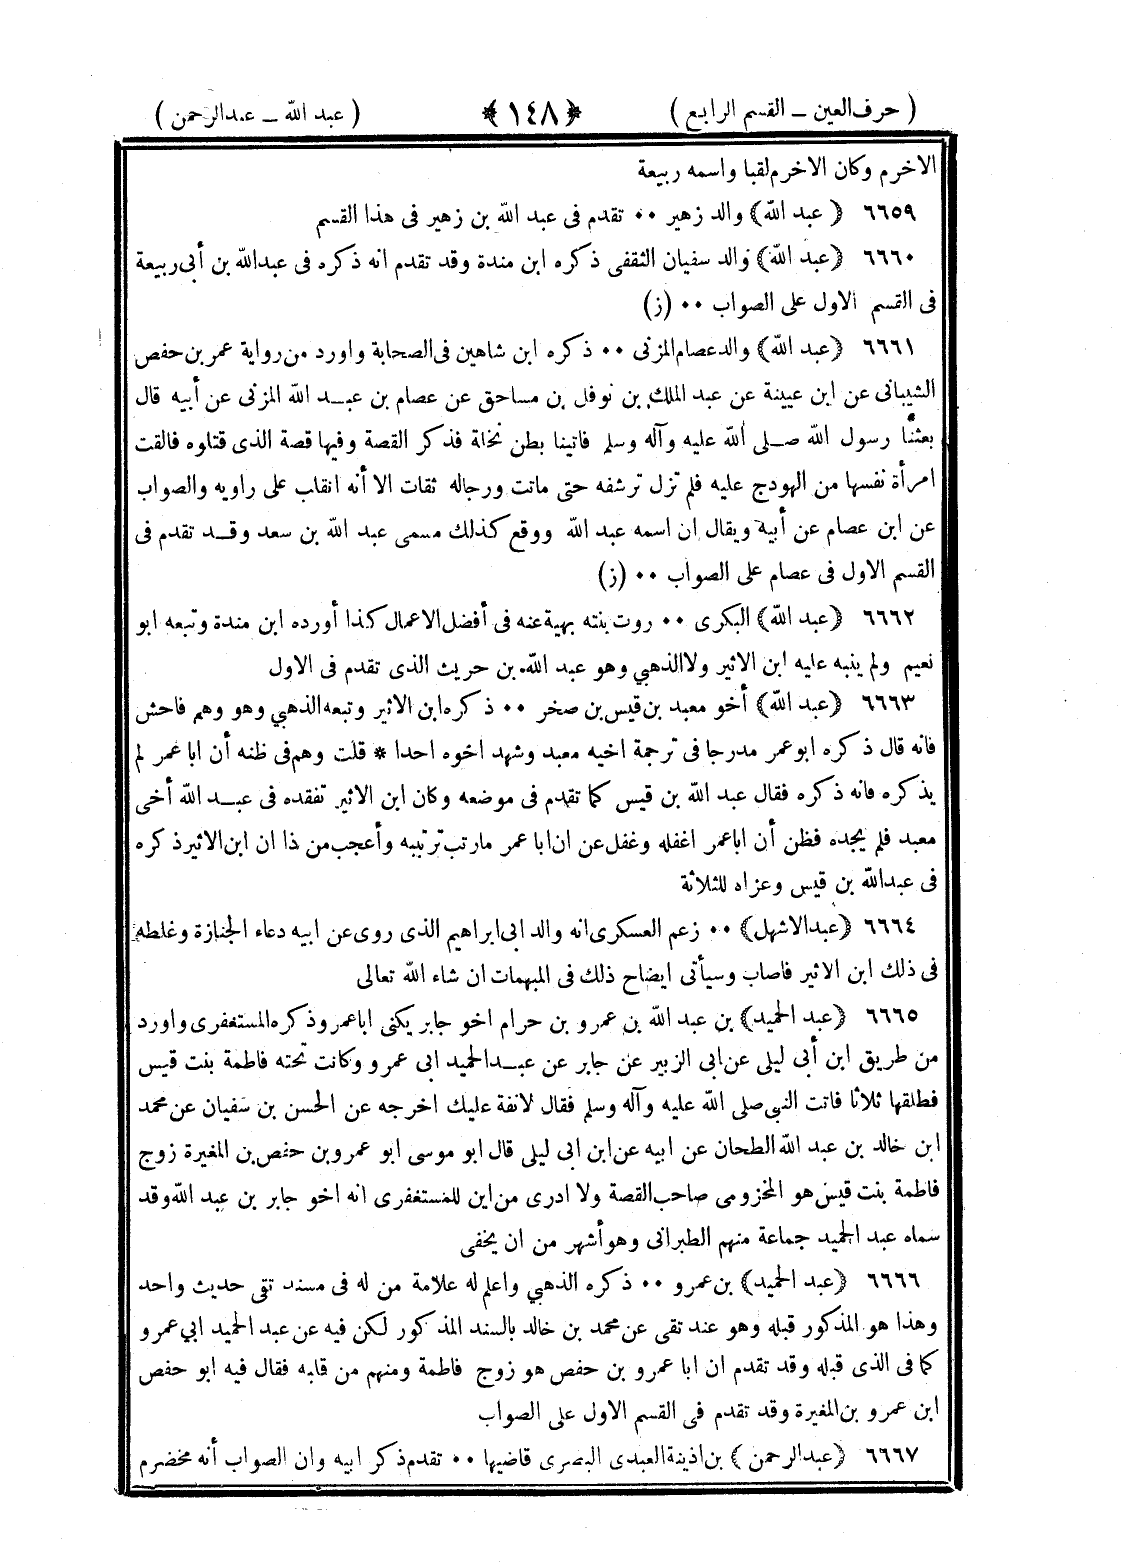 ( حرف العين ـ القسم الرابع ) ﴿ ١٤٨ ﴾ ( عبد الله ـ عبدالرحمن )
الاخرم وكان الاخرم لقبا واسمه ربيعة
٦٦٥٩ ﴿ عبد الله ﴾ والد زهير ٠٠ تقدم فى عبد الله بن زهير فى هذا القسم
٦٦٦٠ ﴿ عبد الله ﴾ والد سفيان الثقفى ذكره ابن مندة وقد تقدم انه ذكره فى عبدالله بن أبى ربيعة
فى القسم الاول على الصواب ٠٠ (ز)
٦٦٦١ ﴿ عبد الله ﴾ والد عصام المزنى ٠٠ ذكره ابن شاهين فى الصحابة واورد من رواية عمر بن حفص
الشيبانى عن ابن عيينة عن عبد الملك بن نوفل بن مساحق عن عصام بن عبد الله المزنى عن أبيه قال
بعثنا رسول الله صلى الله عليه وآله وسلم فاتينا بطن نخلة فذكر القصة وفيها قصة الذى قتلوه فالقت
امرأة نفسها من الهودج عليه فلم تزل ترشفه حتى ماتت ورجاله ثقات الا أنه انقلب على راويه والصواب
عن ابن عصام عن أبيه ويقال ان اسمه عبد الله ووقع كذلك مسمى عبد الله بن سعد وقد تقدم فى
القسم الاول فى عصام على الصواب ٠٠ (ز)
٦٦٦٢ ﴿ عبد الله ﴾ البكرى ٠٠ روت بنته بهية عنه فى أفضل الاعمال كذا أورده ابن مندة وتبعه ابو
نعيم ولم ينبه عليه ابن الاثير ولا الذهبي وهو عبد الله بن حريث الذى تقدم فى الاول
٦٦٦٣ ﴿ عبد الله ﴾ أخو معبد بن قيس بن صخر ٠٠ ذكره ابن الاثير وتبعه الذهبي وهو وهم فاحش
فانه قال ذكره ابو عمر مدرجا فى ترجمة اخيه معبد وشهد اخوه احدا * قلت وهم فى ظنه أن ابا عمر لم
يذكره فانه ذكره فقال عبد الله بن قيس كما تقدم فى موضعه وكان ابن الاثير تفقده فى عبد الله أخى
معبد فلم يجده فظن أن ابا عمر اغفله وغفل عن ان ابا عمر مارتب ترتيبه وأعجب من ذا ان ابن الاثير ذكره
فى عبدالله بن قيس وعزاه للثلاثة
٦٦٦٤ ﴿ عبدالاشهل ﴾ ٠٠ زعم العسكرى انه والد ابى ابراهيم الذى روى عن ابيه دعاء الجنازة وغلطه
فى ذلك ابن الاثير فاصاب وسيأتى ايضاح ذلك فى المبهمات ان شاء الله تعالى
٦٦٦٥ ﴿ عبد الحميد ﴾ بن عبد الله بن عمرو بن حرام اخو جابر يكنى ابا عمرو ذكره المستغفرى واورد
من طريق ابن أبى ليلى عن ابى الزبير عن جابر عن عبد الحميد ابى عمرو وكانت تحته فاطمة بنت قيس
فطلقها ثلاثا فاتت النبى صلى الله عليه وآله وسلم فقال لانفقة عليك اخرجه عن الحسن بن سفيان عن محمد
ابن خالد بن عبد الله الطحان عن ابيه عن ابن ابى ليلى قال ابو موسى ابو عمرو بن حفص بن المغيرة زوج
فاطمة بنت قيس هو المخزومى صاحب القصة ولا ادرى من اين للمستغفرى انه اخو جابر بن عبد الله وقد
سماه عبد الحميد جماعة منهم الطبرانى وهو أشهر من ان يخفى
٦٦٦٦ ﴿ عبد الحميد ﴾ بن عمرو ٠٠ ذكره الذهبي واعلم له علامة من له فى مسند تقى حديث واحد
وهذا هو المذكور قبله وهو عند تقى عن محمد بن خالد بالسند المذكور لكن فيه عن عبد الحميد ابي عمرو
كما فى الذى قبله وقد تقدم ان ابا عمرو بن حفص هو زوج فاطمة ومنهم من قلبه فقال فيه ابو حفص
ابن عمرو بن المغيرة وقد تقدم فى القسم الاول على الصواب
٦٦٦٧ ﴿ عبدالرحمن ﴾ بن اذينة العبدى البصرى قاضيها ٠٠ تقدم ذكر ابيه وان الصواب أنه مخضرم